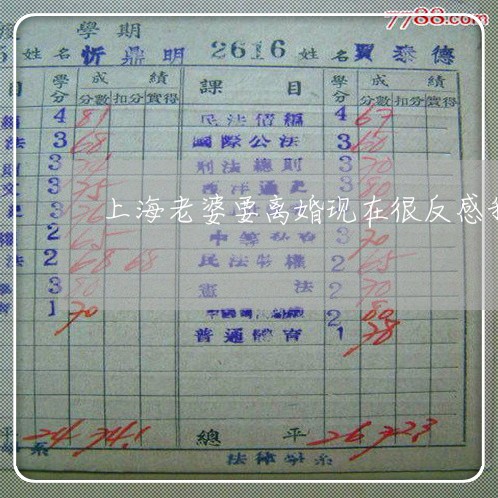 7788.com
學期
5 姓名 忻鼎明 2616 姓名 賈泰德
目 學分 成績 課目 學分 成績
分數 扣分 實得 分數 扣分 實得
4 81 民法債編 4 67
法 3 68 國際公法 3 60
3 刑法總則 3 70
文 3 75 西洋通史 3 80
3 3
上海老婆要离婚现在很反感我
2 65 3 70
法 2 68 68 民法物權 2 65
3 80 憲法 2 70
1 70 2 80
普通體育 1 78
平 24 74.1 總平 26 72.3
系 法律學系